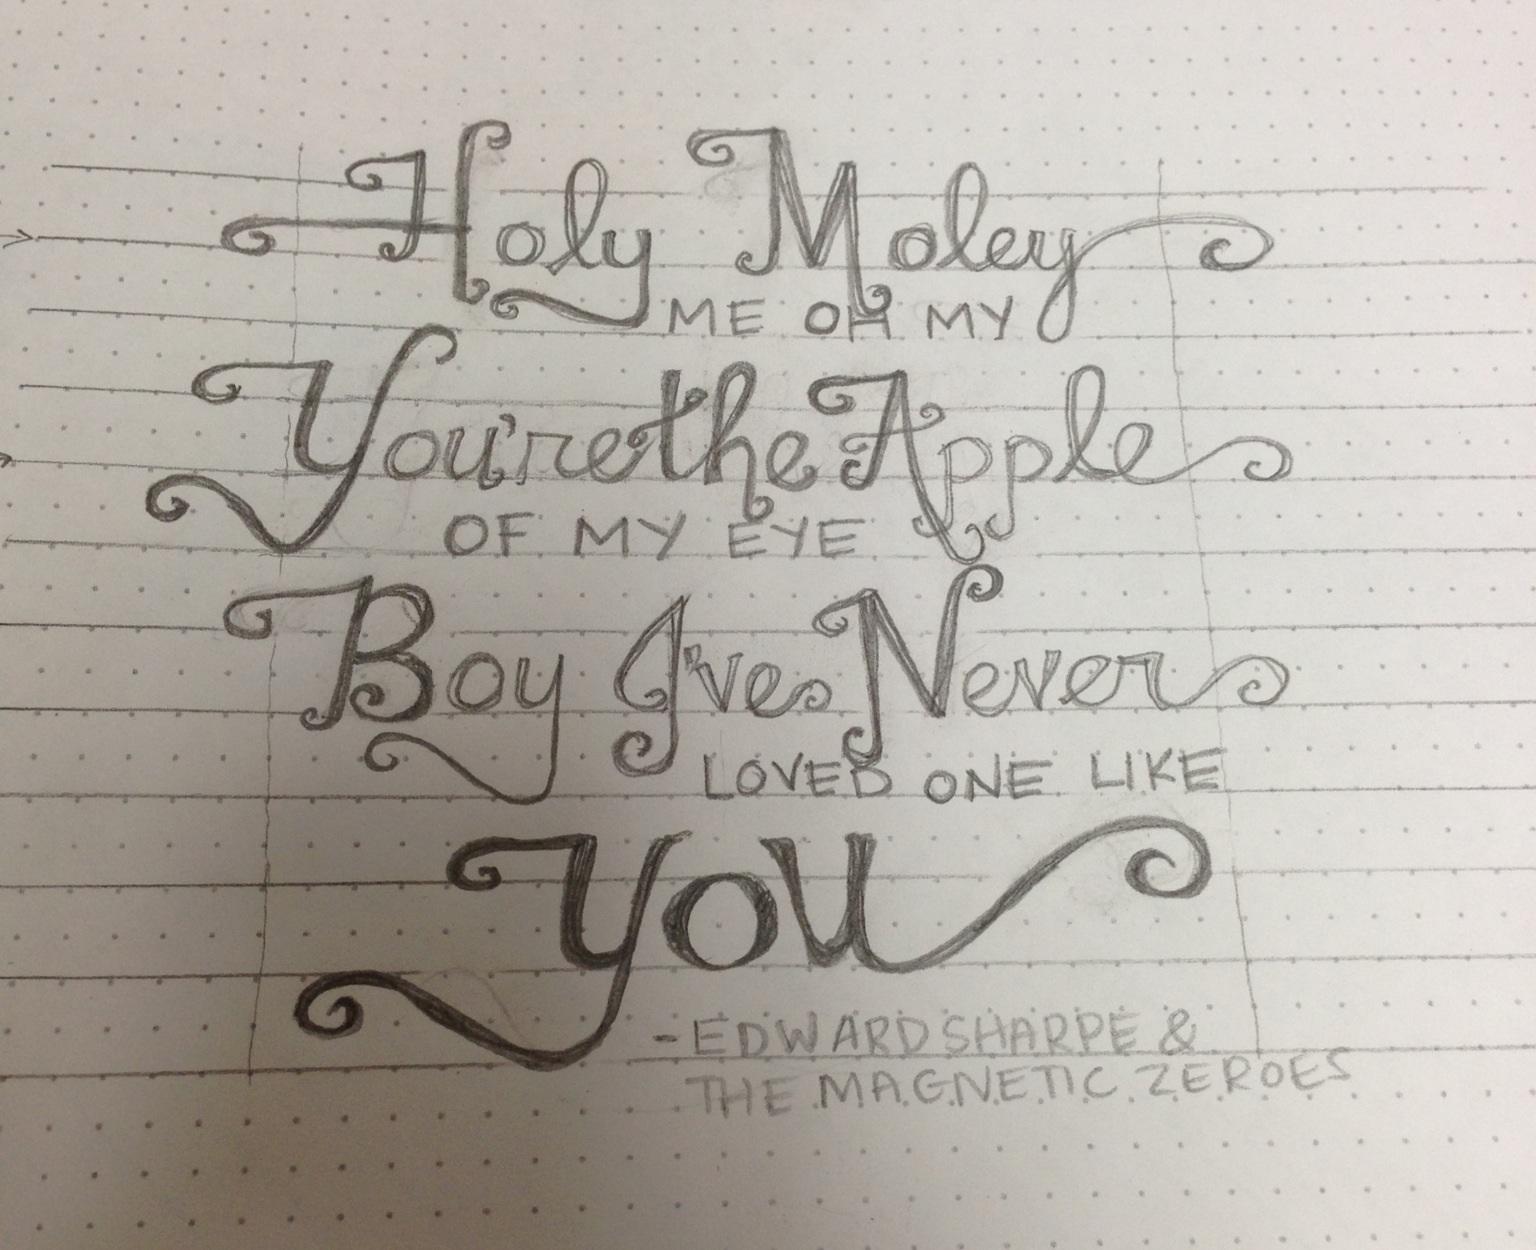 Holy Moley
ME OH MY
You're the Apple
OF MY EYE
Boy I've Never
LOVED ONE LIKE
YOU
-EDWARD SHARPE &
THE MAGNETIC ZEROES